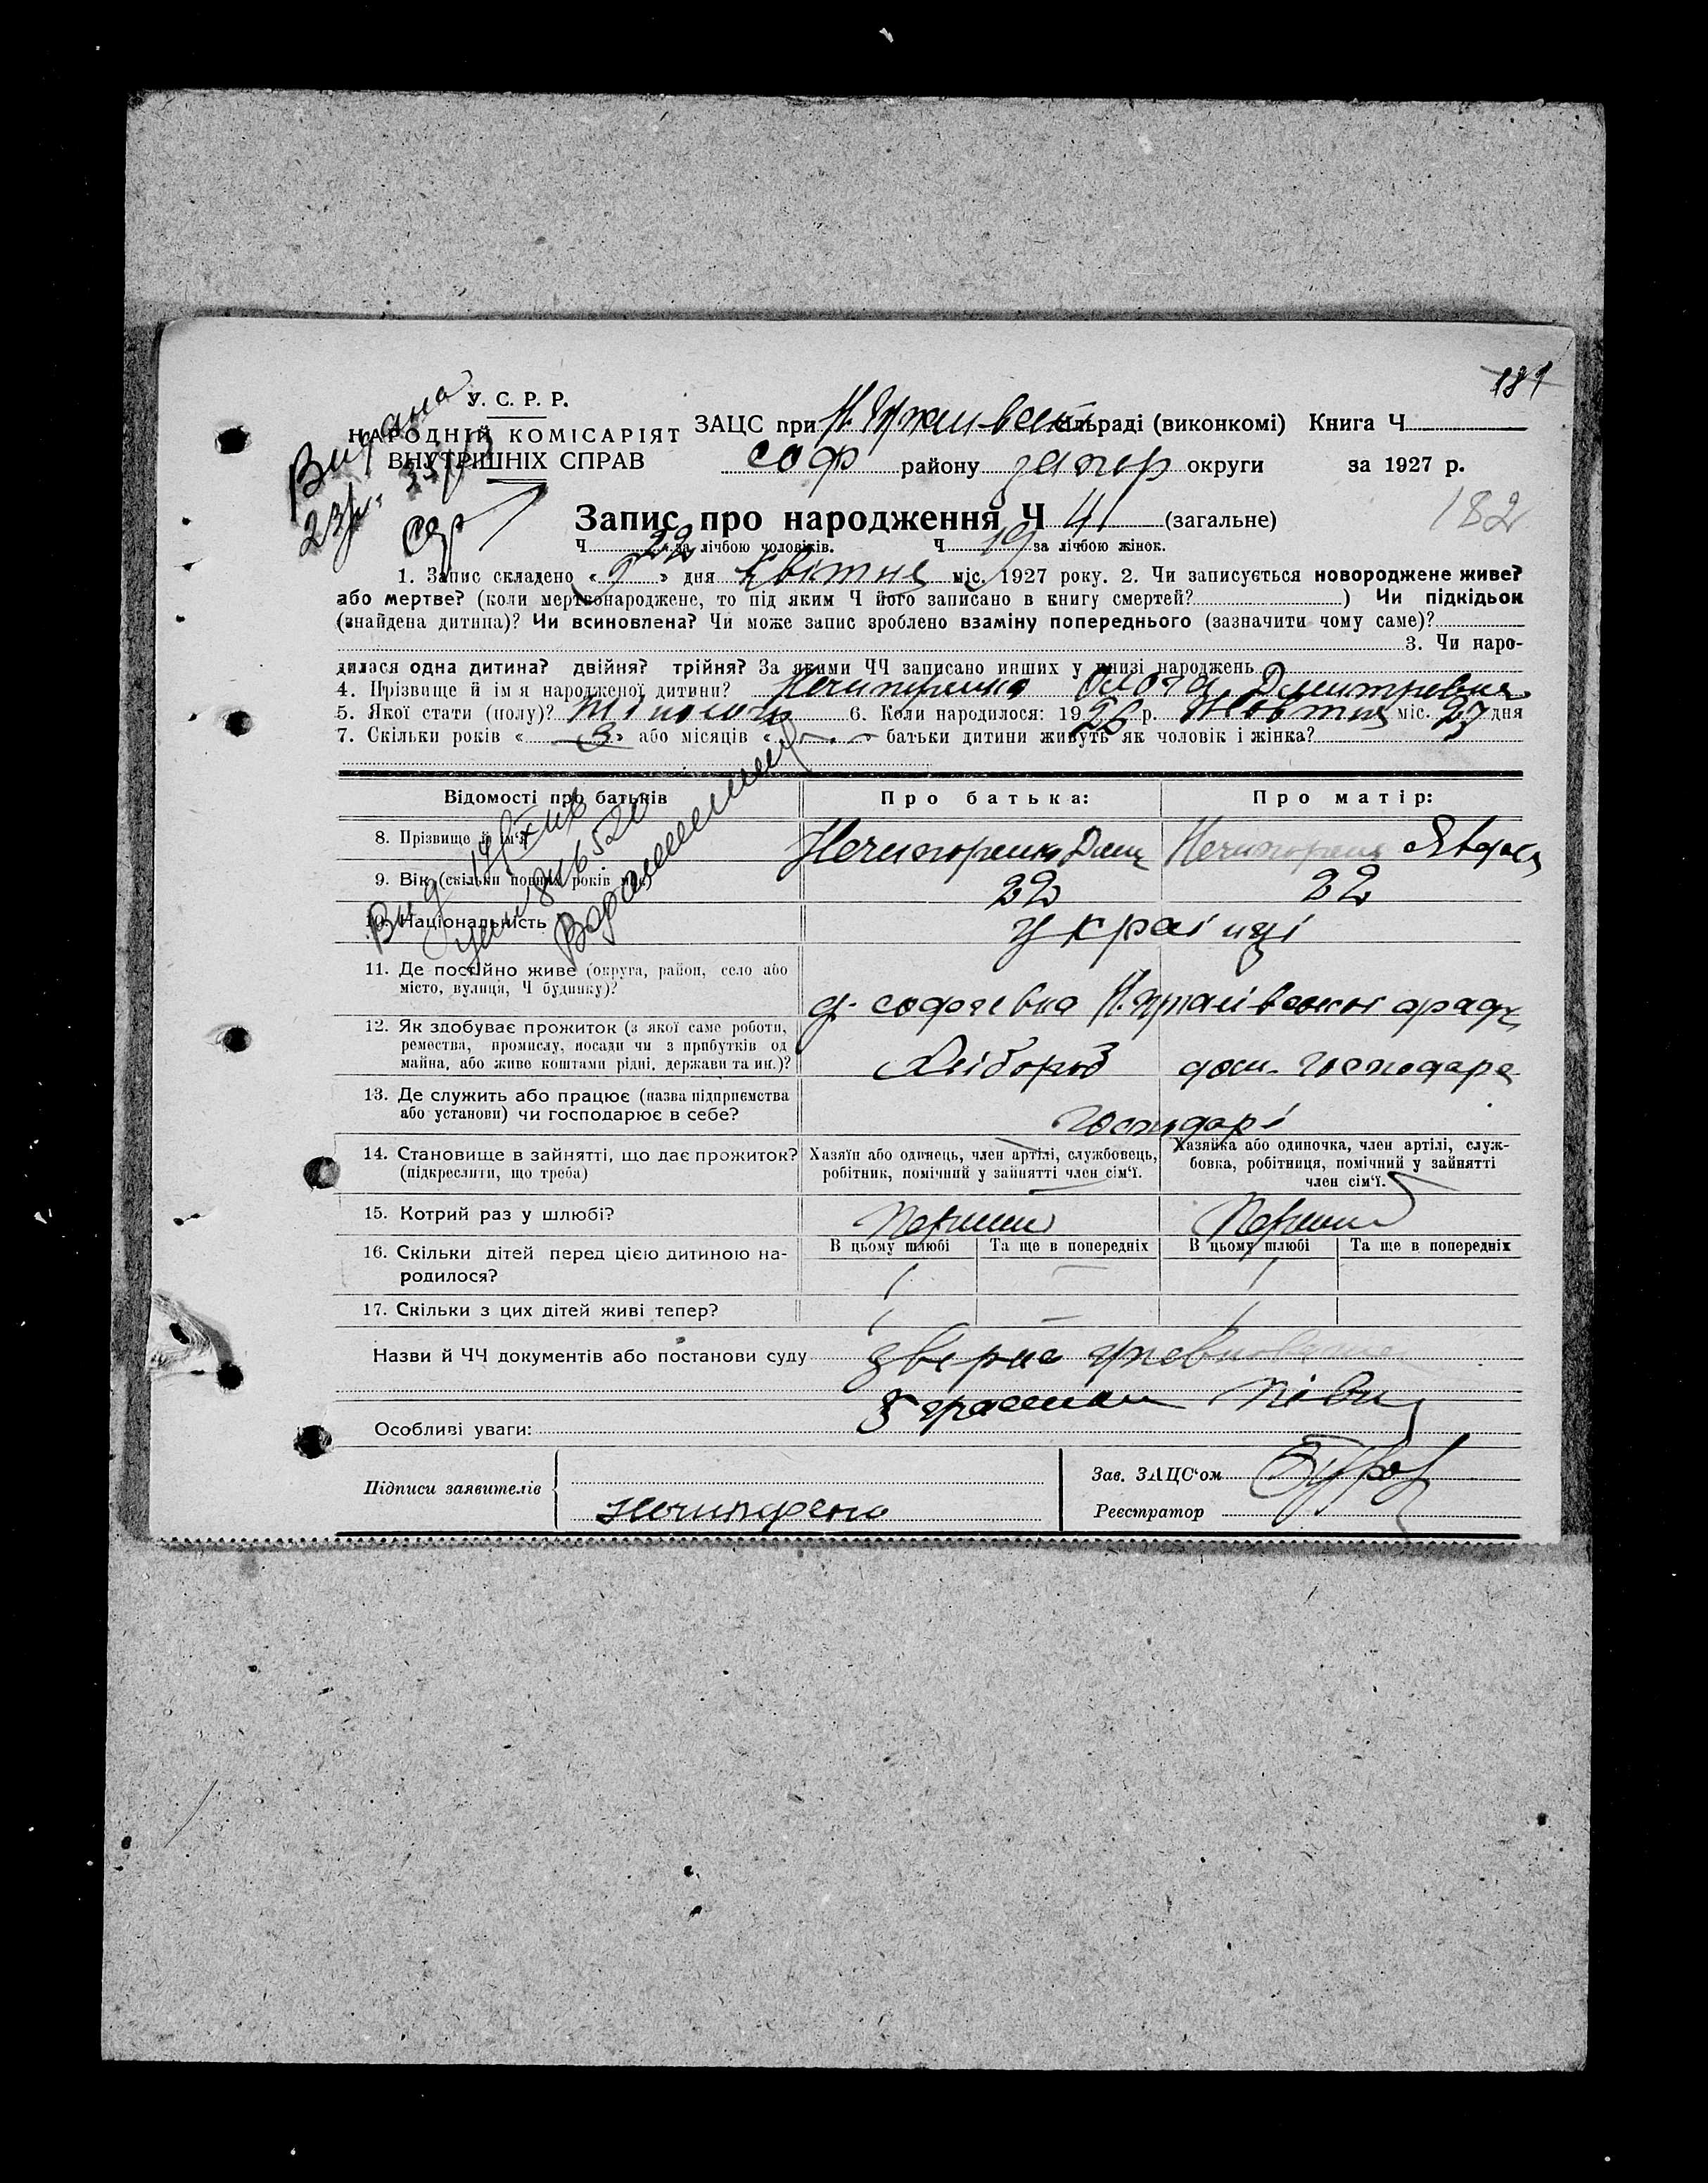 181
У. С. Р. Р.
НАРОДНІЙ КОМІСАРІЯТ
ВНУТРІШНІХ СПРАВ
Видана
ЗАЦС при сільраді (виконкомі) Книга Ч
Соф району Запор округи за 1927 р.
182
Запис про народження Ч 41 (загальне)
Ч 22 за лічбою чоловіків. Ч 19 за лічбою жінок.
1. Запис складено « 9 » дня Квітня міс. 1927 року. 2. Чи записується новороджене живе?
або мертве? (коли мертвонароджене, то під яким Ч його записано в книгу смертей? ) Чи підкідьок
(знайдена дитина)? Чи всиновлена? Чи може запис зроблено взаміну попереднього (зазначити чому саме)?
3. Чи наро-
дилася одна дитина? двійня? трійня? За якими ЧЧ записано инших у книзі народжень
4. Прізвище й ім'я народженої дитини? Нечипоренко Дмитревна
5. Якої стати (полу)? Жіночої 6. Коли народилося: 1926 р. Жовтня міс. 27 дня
7. Скільки років « 3 » або місяців « — » батьки дитини живуть як чоловік і жінка?
Відомості про батьків
Про батька:
Про матір:
8. Прізвище й ім'я
Нечипоренко Дми
Нечипоренк Явдох
9. Вік (скільки повних років має)
22
22
10. Національність
Українці
11. Де постійно живе (округа, район, село або
місто, вулиця, Ч будинку)?
Софіевка
12. Як здобуває прожиток (з якої саме роботи,
ремества, промислу, посади чи з прибутків од
майна, або живе коштами рідні, держави та ин.)?
Хлібороб
дом. господарс
13. Де служить або працює (назва підприємства
або установи) чи господарює в себе?
господарі
14. Становище в зайнятті, що дає прожиток?
(підкреслити, що треба)
Хазяїн або одинець, член артілі, службовець,
робітник, помічний у зайнятті член сім'ї.
Хазяйка або одиночка, член артілі, служ-
бовка, робітниця, помічний у зайнятті
член сім'ї.
15. Котрий раз у шлюбі?
Перший
Перший
16. Скільки дітей перед цією дитиною на-
родилося?
В цьому шлюбі
Та ще в попередніх
В цьому шлюбі
Та ще в попередніх
1
—
1
17. Скільки з цих дітей живі тепер?
1
—
1
Назви й ЧЧ документів або постанови суду
Особливі уваги:
Підписи заявителів
Нечипорено
Зав. ЗАЦС'ом
Реєстратор